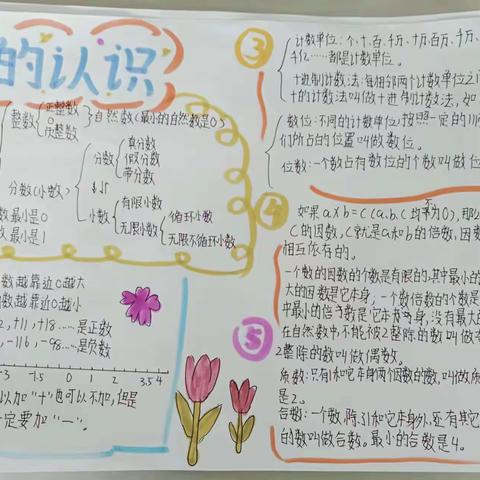 的认识
整数
正整数
0
负整数
自然数(最小的自然数是0)
分数(小数)
分数
真分数
假分数
带分数
小数
有限小数
无限小数
循环小数
无限不循环小数
数最小是0
数最小是1
数越靠近0越大
数越靠近0越小
2,+11,+18……是正数
,-116,-98……是负数
-3 -1.5 0 1 2 3.5 4
以加"+"也可以不加,但是
一定要加"一"。
③
计数单位:个、十、百、千万、十万、百万、千万、
千亿……都是计数单位。
十进制计数法:每相邻两个计数单位之间
十的计数法叫做十进制计数法,如
数位:不同的计数单位,按照一定的顺
们所占的位置叫做数位。
位数:一个数占有数位的个数叫做位
④
如果a×b=c(a、b、c均不为0),那
c的因数,c就是a和b的倍数,因数
相互依存的。
一个数的因数的个数是有限的,其中最小的
大的因数是它本身;一个数倍数的个数是
中最小的倍数是它本身,没有最大的
⑤
在自然数中,不能被2整除的数叫做
2整除的数叫做偶数。
质数:只有1和它本身两个因数的数,叫做质
是2。
合数:一个数,除了1和它本身外,还有其它
的数叫做合数。最小的合数是4。